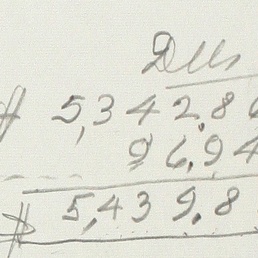 Dlls
$ 5,342.86
96.94
$ 5,439.8